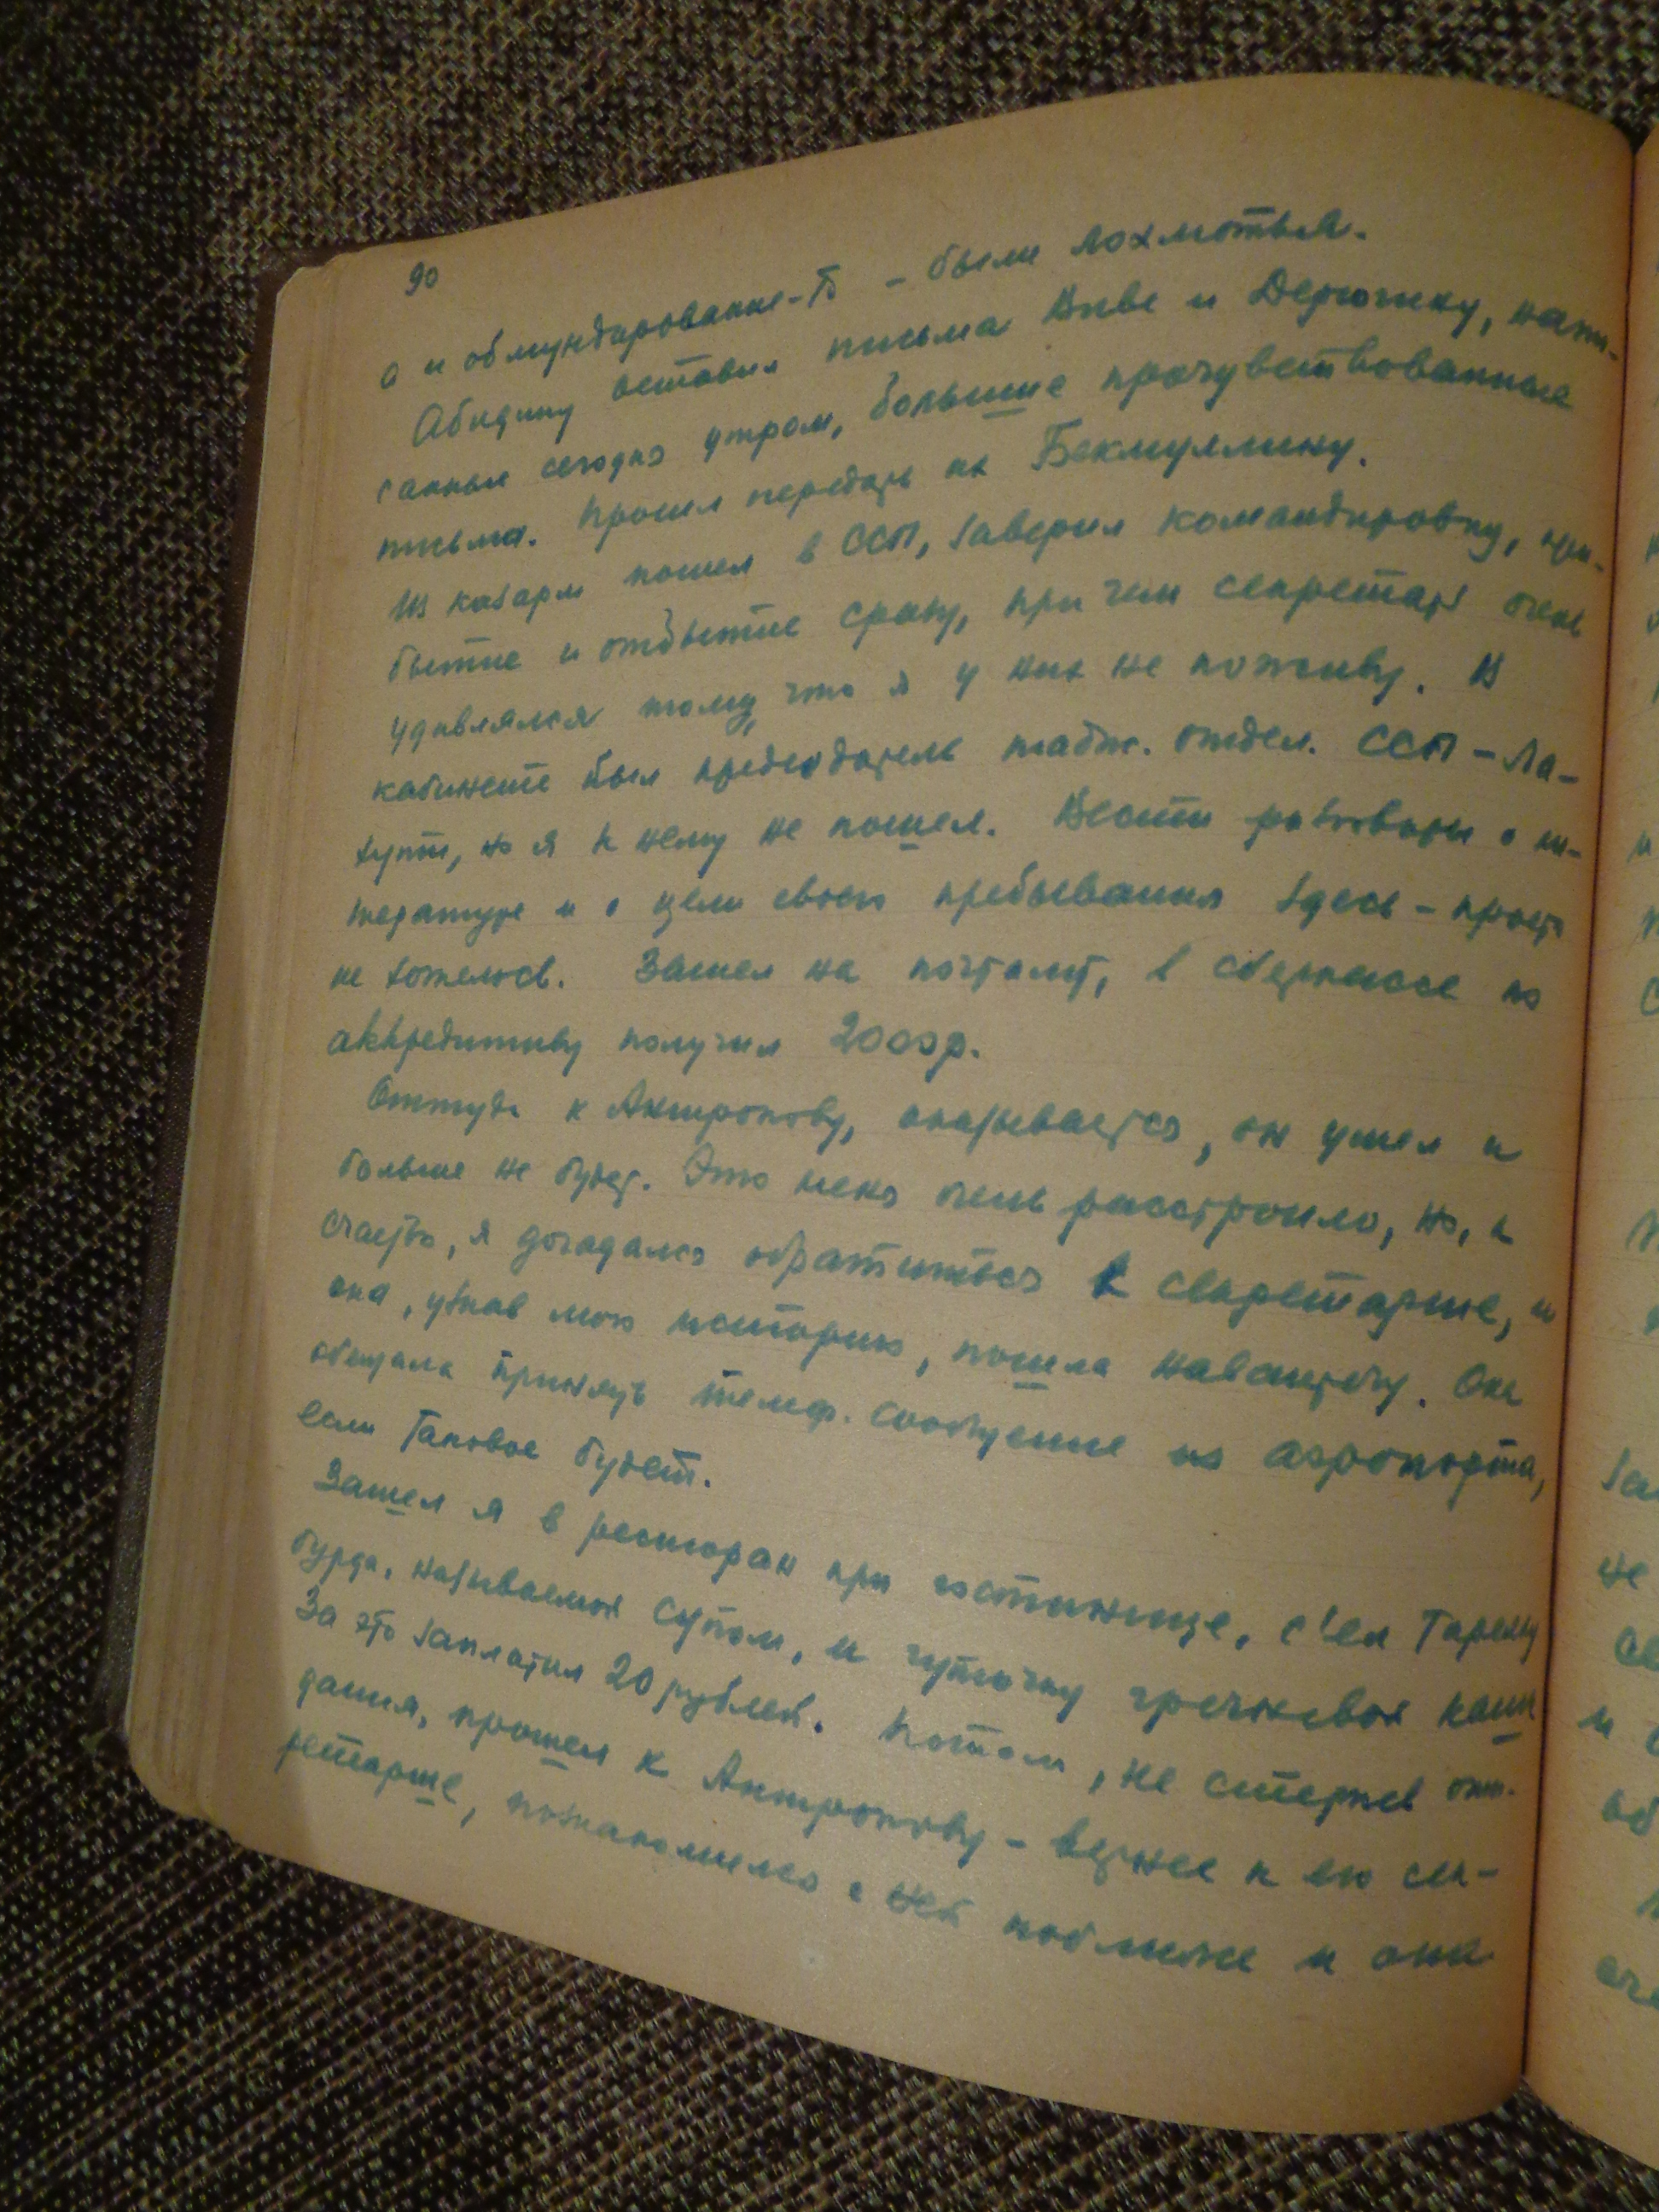 90
а и обмундирование-то – были лохмотья.
Абидину оставил письма Виве и Дерюгину, напи-
санные сегодня утром, большие прочувствованные
письма. Просил передать их Бекмуллину.
Из казарм пошел в ССП, заверил командировку, при-
бытие и отбытие сразу, при чем секретарь очень
удивлялся тому, что я у них не поживу. В
кабинете был председатель таджик. отдел. ССП – Ла-
хути, но я к нему не пошел. Вести разговоры о ли-
тературе и о цели своего пребывания здесь – просто
не хотелось. Зашел на почтамт, в сберкассе по
аккредитиву получил 2000 р.
Оттуда к Антропову, оказывается, он ушел и
больше не будет. Это меня очень расстроило, но, к
счастью, я догадался обратиться к секретарше, и
она, узнав мою историю, пошла навстречу. Она
обещала принять телеф. сообщение из аэропорта,
если таковое будет.
Зашел я в ресторан при гостинице, с'ел тарелку
бурда, называемой супом, и чуточку гречневой каши
За это заплатил 20 рублей. Потом, не стерпев ожи-
дания, прошел к Антропову – вернее к его сек-
ретарше, познакомился с ней поближе и она